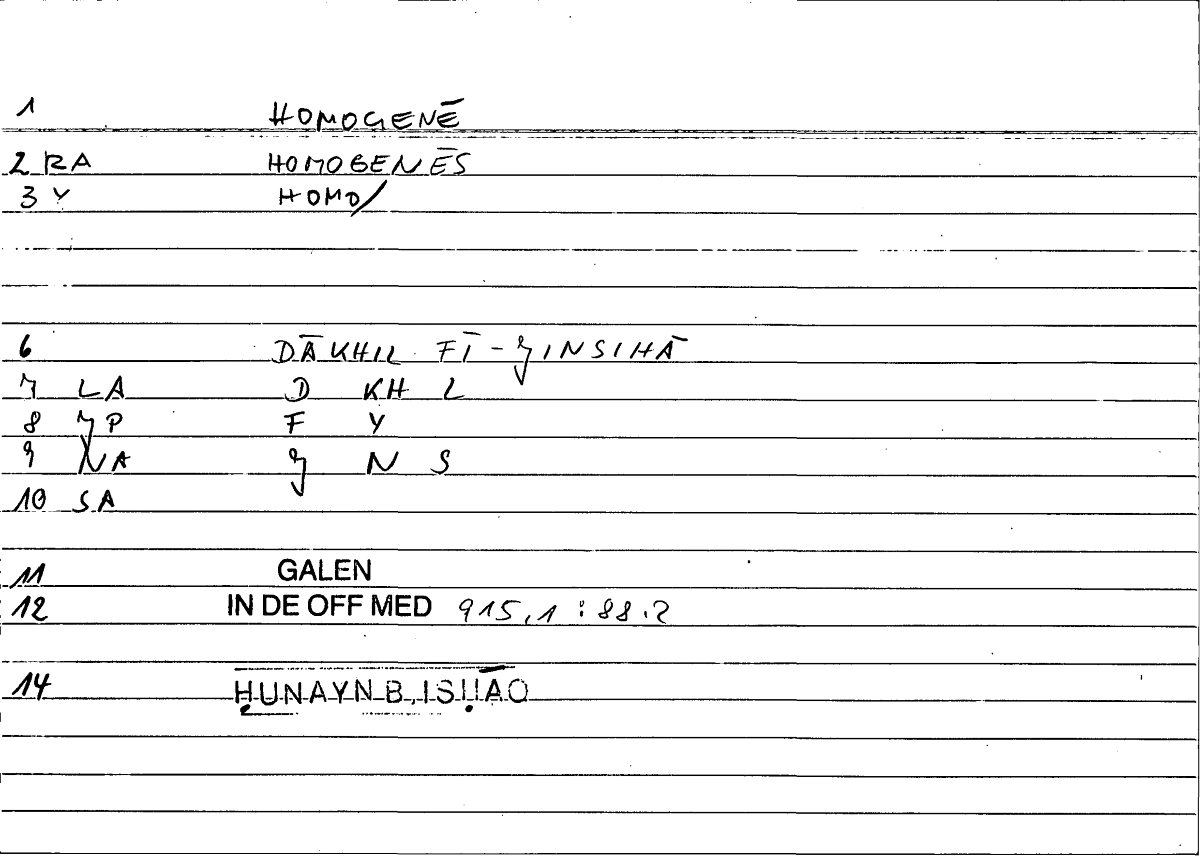 1 HOMOGENĒ
2 RA HOMOGENĒS
3 Y HOMO/
6 DĀKHIL FĪ-ǦINSIHĀ
7 LA D KH L
8 JP F Y
9 NA Ǧ N S
10 SA
11 GALEN
12 IN DE OFF MED 915,1 : 88.2
14 ḤUNAYN B. ISḤĀQ